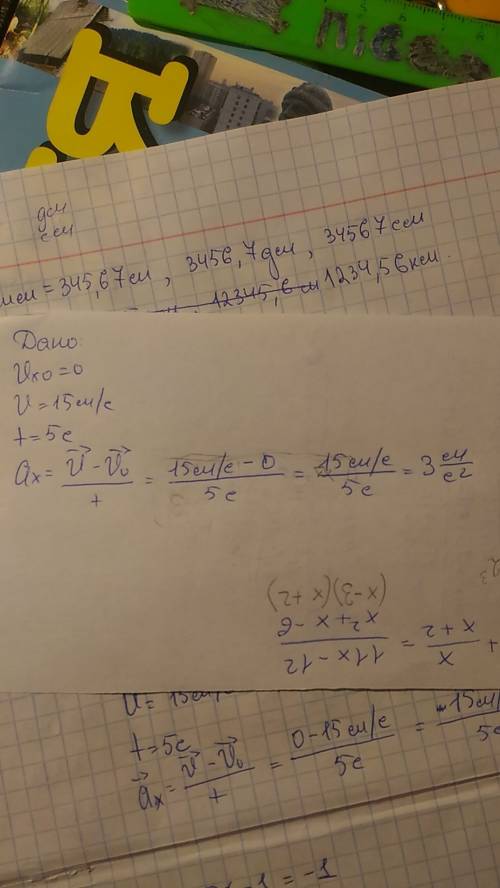 дсм
ссм
= 345,67см, 3456,7дм, 34567см
12345,6 1234,56км.
Дано:
Vx0 = 0
V = 15см/с
t = 5с
ax = V⃗ - V⃗0 / t = 15см/с - 0 / 5с = 15см/с / 5с = 3 см/с²
x / x+2 = 11x - 12 / x² + x - 6
(x-3)(x+2)
V = 15см/с
t = 5с
a⃗x = V⃗ - V⃗0 / t = 0 - 15см/с / 5с = -15см/ 5с
-1 = -1